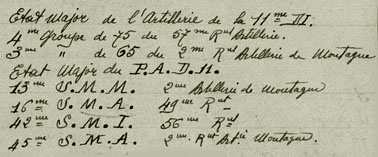 Etat Major de l'Artillerie de la 11me DI.
4me Groupe de 75 du 57me Rut Artillerie.
3me " de 65 du 2me Rut Artillerie de Montagne
Etat Major du P.A.D. 11.
13me S.M.M. 2me Artillerie de Montagne
16me S.M.A. 49me Rut
42me S.M.I. 56me Rut
45me S.M.A. 2me Rut Artie Montagne.